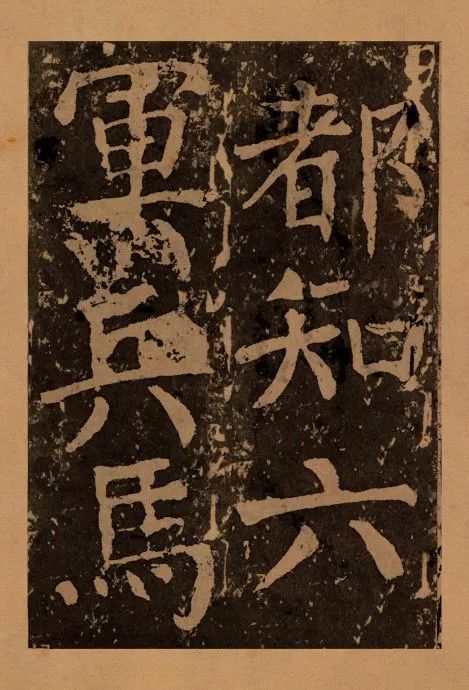 都知六
軍兵馬